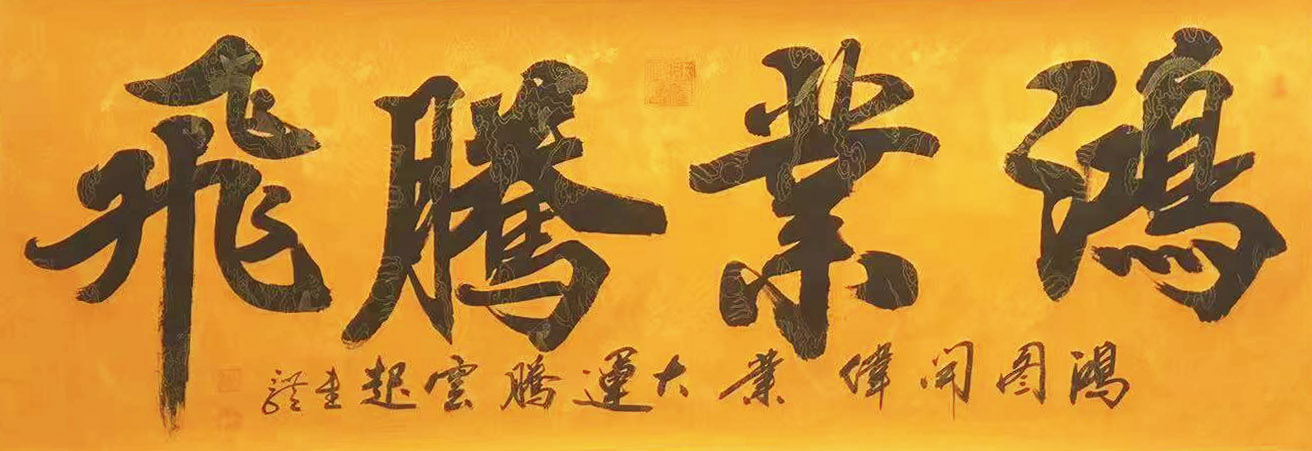 鴻業騰飛
鴻图開偉業大運騰雲起